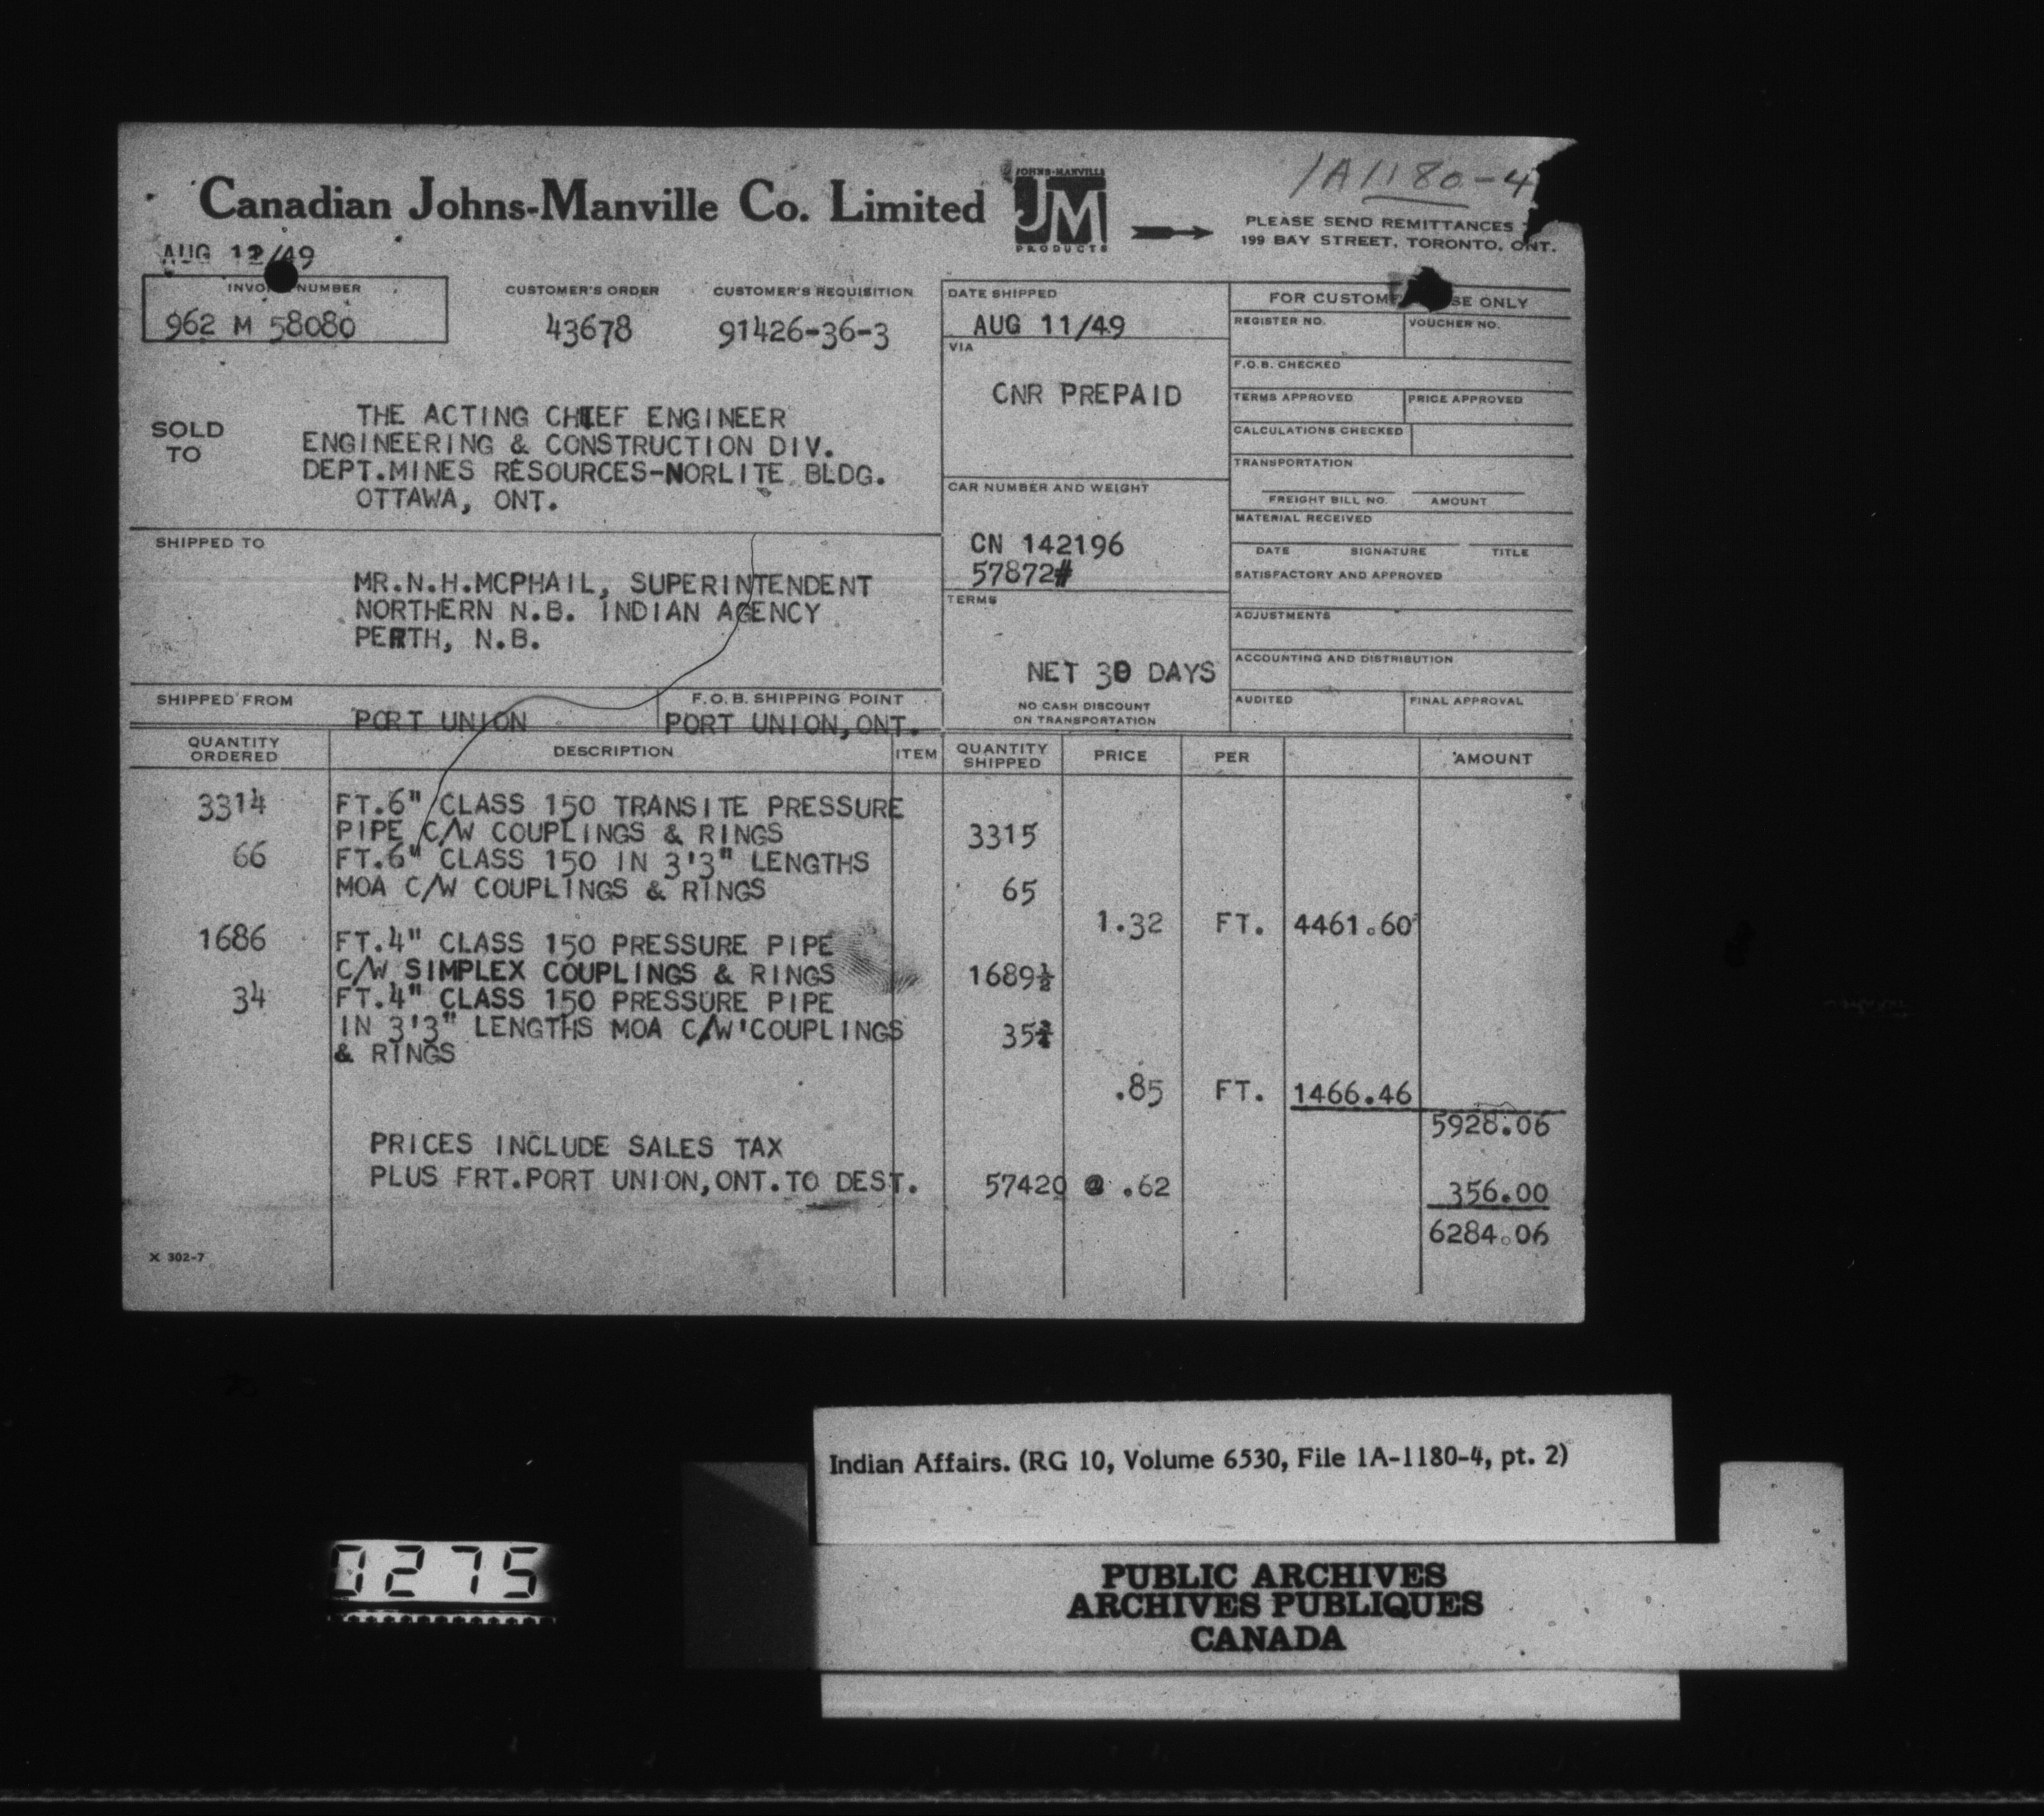 1A1180-4
Canadian Johns-Manville Co. Limited
JOHNS-MANVILLE
JM
PRODUCTS
PLEASE SEND REMITTANCES
199 BAY STREET, TORONTO, ONT.
AUG 12/49
INVOICE NUMBER
962 M 58080
CUSTOMER'S ORDER
43678
CUSTOMER'S REQUISITION
91426-36-3
DATE SHIPPED
AUG 11/49
VIA
CNR PREPAID
SOLD
TO
THE ACTING CHIEF ENGINEER
ENGINEERING & CONSTRUCTION DIV.
DEPT.MINES RESOURCES-NORLITE BLDG.
OTTAWA, ONT.
CAR NUMBER AND WEIGHT
CN 142196
57872#
SHIPPED TO
MR.N.H.MCPHAIL, SUPERINTENDENT
NORTHERN N.B. INDIAN AGENCY
PERTH, N.B.
TERMS
NET 30 DAYS
NO CASH DISCOUNT
ON TRANSPORTATION
SHIPPED FROM
PORT UNION
F.O.B. SHIPPING POINT
PORT UNION,ONT.
FOR CUSTOMER'S USE ONLY
REGISTER NO. VOUCHER NO.
F.O.B. CHECKED
TERMS APPROVED PRICE APPROVED
CALCULATIONS CHECKED
TRANSPORTATION
FREIGHT BILL NO. AMOUNT
MATERIAL RECEIVED
DATE SIGNATURE TITLE
SATISFACTORY AND APPROVED
ADJUSTMENTS
ACCOUNTING AND DISTRIBUTION
AUDITED FINAL APPROVAL
QUANTITY ORDERED DESCRIPTION ITEM QUANTITY SHIPPED PRICE PER AMOUNT
3314 FT.6" CLASS 150 TRANSITE PRESSURE
PIPE C/W COUPLINGS & RINGS 3315
66 FT.6" CLASS 150 IN 3'3" LENGTHS
MOA C/W COUPLINGS & RINGS 65
1.32 FT. 4461.60
1686 FT.4" CLASS 150 PRESSURE PIPE
C/W SIMPLEX COUPLINGS & RINGS 1689½
34 FT.4" CLASS 150 PRESSURE PIPE
IN 3'3" LENGTHS MOA C/W COUPLINGS 35¾
& RINGS
.85 FT. 1466.46
5928.06
PRICES INCLUDE SALES TAX
PLUS FRT.PORT UNION,ONT.TO DEST. 57420 @ .62 356.00
6284.06
X 302-7
Indian Affairs. (RG 10, Volume 6530, File 1A-1180-4, pt. 2)
0275
PUBLIC ARCHIVES
ARCHIVES PUBLIQUES
CANADA